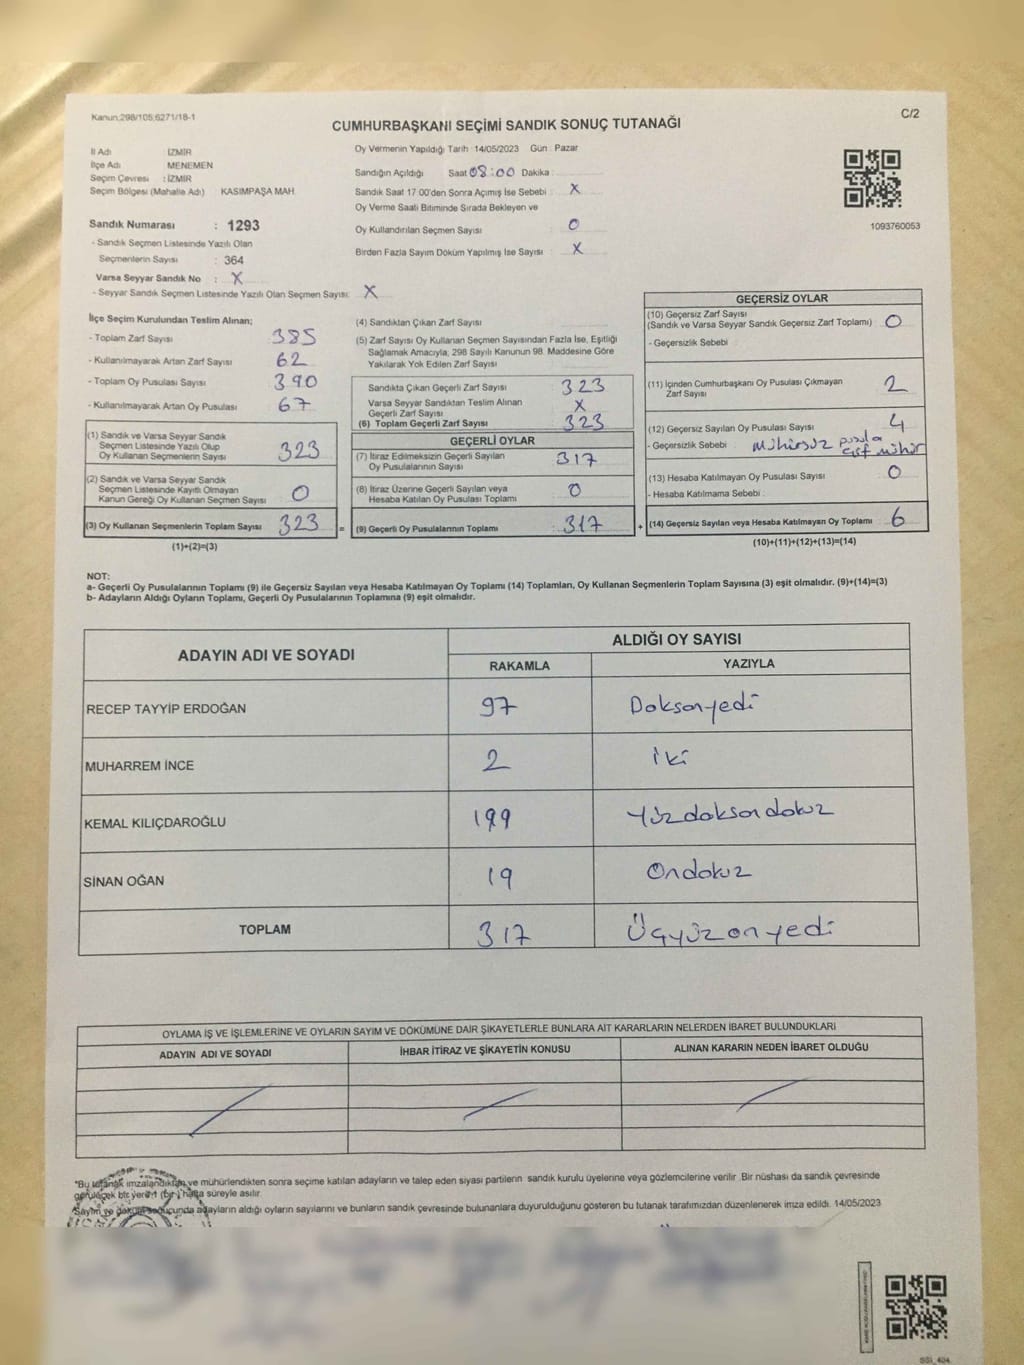 Kanun:298/105;6271/18-1
C/2
CUMHURBAŞKANI SEÇİMİ SANDIK SONUÇ TUTANAĞI
İl Adı : İZMİR
İlçe Adı : MENEMEN
Seçim Çevresi : İZMİR
Seçim Bölgesi (Mahalle Adı) : KASIMPAŞA MAH.
Sandık Numarası : 1293
- Sandık Seçmen Listesinde Yazılı Olan
Seçmenlerin Sayısı : 364
Varsa Seyyar Sandık No : X
- Seyyar Sandık Seçmen Listesinde Yazılı Olan Seçmen Sayısı: X
Oy Vermenin Yapıldığı Tarih : 14/05/2023 Gün : Pazar
Sandığın Açıldığı Saat 08:00 Dakika :
Sandık Saat 17:00'den Sonra Açılmış İse Sebebi : X
Oy Verme Saati Bitiminde Sırada Bekleyen ve
Oy Kullandırılan Seçmen Sayısı : 0
Birden Fazla Sayım Döküm Yapılmış İse Sayısı : X
1093760053
İlçe Seçim Kurulundan Teslim Alınan;
- Toplam Zarf Sayısı : 385
- Kullanılmayarak Artan Zarf Sayısı : 62
- Toplam Oy Pusulası Sayısı : 390
- Kullanılmayarak Artan Oy Pusulası : 67
(1) Sandık ve Varsa Seyyar Sandık
Seçmen Listesinde Yazılı Olup
Oy Kullanan Seçmenlerin Sayısı : 323
(2) Sandık ve Varsa Seyyar Sandık
Seçmen Listesinde Kayıtlı Olmayan
Kanun Gereği Oy Kullanan Seçmen Sayısı : 0
(3) Oy Kullanan Seçmenlerin Toplam Sayısı : 323 =
(1)+(2)=(3)
(4) Sandıktan Çıkan Zarf Sayısı
(5) Zarf Sayısı Oy Kullanan Seçmen Sayısından Fazla İse, Eşitliği
Sağlamak Amacıyla, 298 Sayılı Kanunun 98. Maddesine Göre
Yakılarak Yok Edilen Zarf Sayısı
Sandıkta Çıkan Geçerli Zarf Sayısı : 323
Varsa Seyyar Sandıktan Teslim Alınan
Geçerli Zarf Sayısı : X
(6) Toplam Geçerli Zarf Sayısı : 323
GEÇERLİ OYLAR
(7) İtiraz Edilmeksizin Geçerli Sayılan
Oy Pusulalarının Sayısı : 317
(8) İtiraz Üzerine Geçerli Sayılan veya
Hesaba Katılan Oy Pusulası Toplamı : 0
(9) Geçerli Oy Pusulalarının Toplamı : 317 +
GEÇERSİZ OYLAR
(10) Geçersiz Zarf Sayısı
(Sandık ve Varsa Seyyar Sandık Geçersiz Zarf Toplamı) : 0
- Geçersizlik Sebebi :
(11) İçinden Cumhurbaşkanı Oy Pusulası Çıkmayan
Zarf Sayısı : 2
(12) Geçersiz Sayılan Oy Pusulası Sayısı : 4
- Geçersizlik Sebebi : mühürsüz pusula
çift mühür
(13) Hesaba Katılmayan Oy Pusulası Sayısı : 0
- Hesaba Katılmama Sebebi :
(14) Geçersiz Sayılan veya Hesaba Katılmayan Oy Toplamı : 6
(10)+(11)+(12)+(13)=(14)
NOT:
a- Geçerli Oy Pusulalarının Toplamı (9) ile Geçersiz Sayılan veya Hesaba Katılmayan Oy Toplamı (14) Toplamları, Oy Kullanan Seçmenlerin Toplam Sayısına (3) eşit olmalıdır. (9)+(14)=(3)
b- Adayların Aldığı Oyların Toplamı, Geçerli Oy Pusulalarının Toplamına (9) eşit olmalıdır.
ADAYIN ADI VE SOYADI
ALDIĞI OY SAYISI
RAKAMLA YAZIYLA
RECEP TAYYİP ERDOĞAN 97 Doksanyedi
MUHARREM İNCE 2 İki
KEMAL KILIÇDAROĞLU 199 Yüzdoksandokuz
SİNAN OĞAN 19 Ondokuz
TOPLAM 317 Üçyüzonyedi
OYLAMA İŞ VE İŞLEMLERİNE VE OYLARIN SAYIM VE DÖKÜMÜNE DAİR ŞİKAYETLERLE BUNLARA AİT KARARLARIN NELERDEN İBARET BULUNDUKLARI
ADAYIN ADI VE SOYADI İHBAR İTİRAZ VE ŞİKAYETİN KONUSU ALINAN KARARIN NEDEN İBARET OLDUĞU
"Bu tutanak imzalandıktan ve mühürlendikten sonra seçime katılan adayların ve talep eden siyasi partilerin sandık kurulu üyelerine veya gözlemcilerine verilir. Bir nüshası da sandık çevresinde
görülecek bir yere 1 (bir) hafta süreyle asılır.
Sayım ve döküm sonucunda adayların aldığı oyların sayılarını ve bunların sandık çevresinde bulunanlara duyurulduğunu gösteren bu tutanak tarafımızdan düzenlenerek imza edildi. 14/05/2023